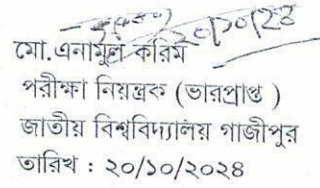 ২০/১০/২৪
মো.এনামুল করিম
পরীক্ষা নিয়ন্ত্রক (ভারপ্রাপ্ত )
জাতীয় বিশ্ববিদ্যালয় গাজীপুর
তারিখ : ২০/১০/২০২৪